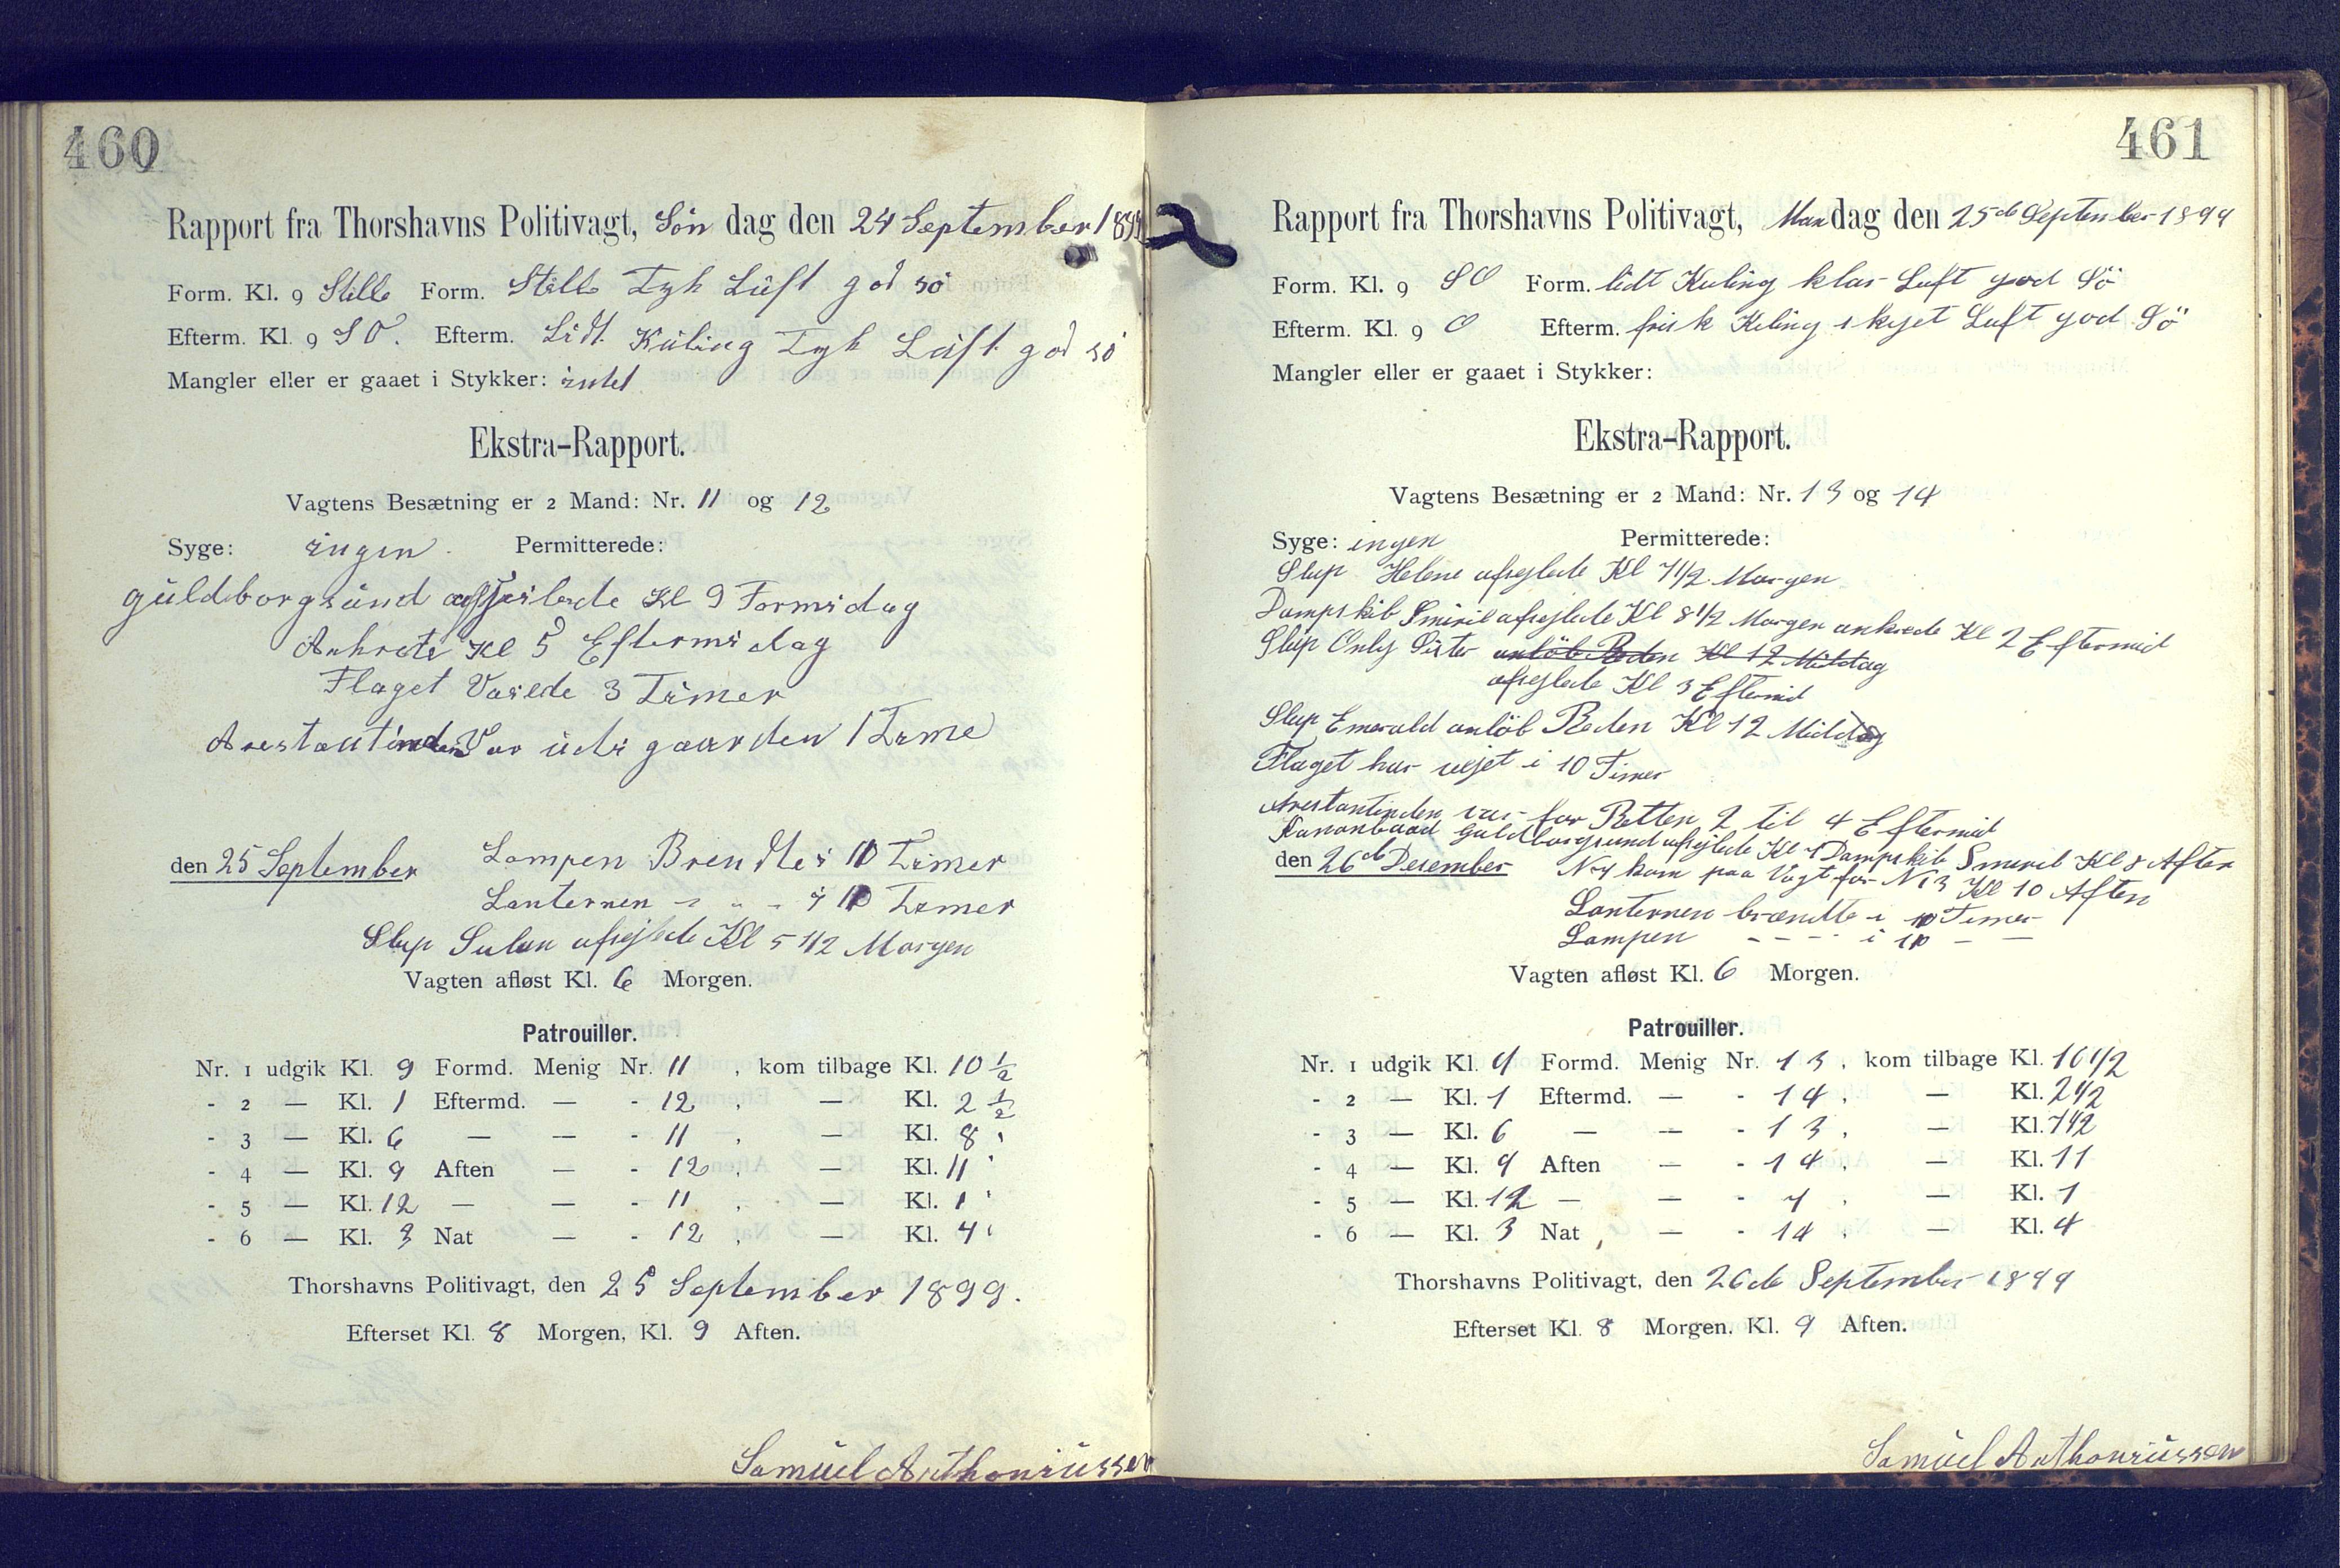 460
Rapport fra Thorshavns Politivagt, Søn dag den 24 September 1899
Form. Kl. 9 Stille Form. Stille Tyk Luft god sö
Efterm. Kl. 9 SO. Efterm. Lidt Kuling Tyk Luft god sö
Mangler eller er gaaet i Stykker: intet
Ekstra-Rapport.
Vagtens Besætning er 2 Mand: Nr. 11 og 12
Syge: ingen Permitterede:
guldborgsund afseilede Kl 9 Formidag
Ankrete Kl 5 Eftermidag
Flaget Vaiede 3 Timer
Arestantinden Var udi gaarden 1 Time
den 25 September Lampen Brendte i 10 Timer
Lanternen - " - i 10 Timer
Slup Sulan afsejlede Kl 5 1/2 Morgen
Vagten afløst Kl. 6 Morgen.
Patrouiller.
Nr. 1 udgik Kl. 9 Formd. Menig Nr. 11 , kom tilbage Kl. 10 1/2
- 2 — Kl. 1 Eftermd. — - 12 , — Kl. 2 1/2
- 3 — Kl. 6 — — - 11 , — Kl. 8 "
- 4 — Kl. 9 Aften — - 12 , — Kl. 11 "
- 5 — Kl. 12 — — - 11 , — Kl. 1 "
- 6 — Kl. 3 Nat — - 12 , — Kl. 4 "
Thorshavns Politivagt, den 25 September 1899.
Efterset Kl. 8 Morgen, Kl. 9 Aften.
Samuel Anthoniussen
461
Rapport fra Thorshavns Politivagt, Man dag den 25de September 1899
Form. Kl. 9 SO Form. lidt Kuling klar Luft god Sö
Efterm. Kl. 9 O Efterm. frisk Kuling skyet Luft god Sö
Mangler eller er gaaet i Stykker:
Ekstra-Rapport.
Vagtens Besætning er 2 Mand: Nr. 13 og 14
Syge: ingen Permitterede:
Slup Helene afsejlede Kl 7 1/2 Morgen
Dampskib Smiril afsejlede Kl 8 1/2 Morgen ankrede Kl 2 Eftermid
Slup Only Sister anlöb Reden Kl 12 Middag
afsejlede Kl 3 Eftermid
Slup Emerald anlöb Reden Kl 12 Middag
Flaget har vejet i 10 Timer
Arestantinden var for Retten 2 til 4 Eftermid
Kanonbaad Guldborgsund afsejlede Kl 7 Dampskib Smeril Kl 8 Aften
den 26de Desember N 7 kom paa Vagt for N 13 Kl 10 Aften
Lanternen brændte i 10 Timer
Lampen - - - - i 10 — —
Vagten afløst Kl. 6 Morgen.
Patrouiller.
Nr. 1 udgik Kl. 9 Formd. Menig Nr. 13 , kom tilbage Kl. 10 1/2
- 2 — Kl. 1 Eftermd. — - 14 , — Kl. 2 1/2
- 3 — Kl. 6 — — - 13 , — Kl. 7 1/2
- 4 — Kl. 9 Aften — - 14 , — Kl. 11
- 5 — Kl. 12 — — - 7 , — Kl. 1
- 6 — Kl. 3 Nat , — - 14 , — Kl. 4
Thorshavns Politivagt, den 26de September 1899
Efterset Kl. 8 Morgen. Kl. 9 Aften.
Samuel Anthoniussen